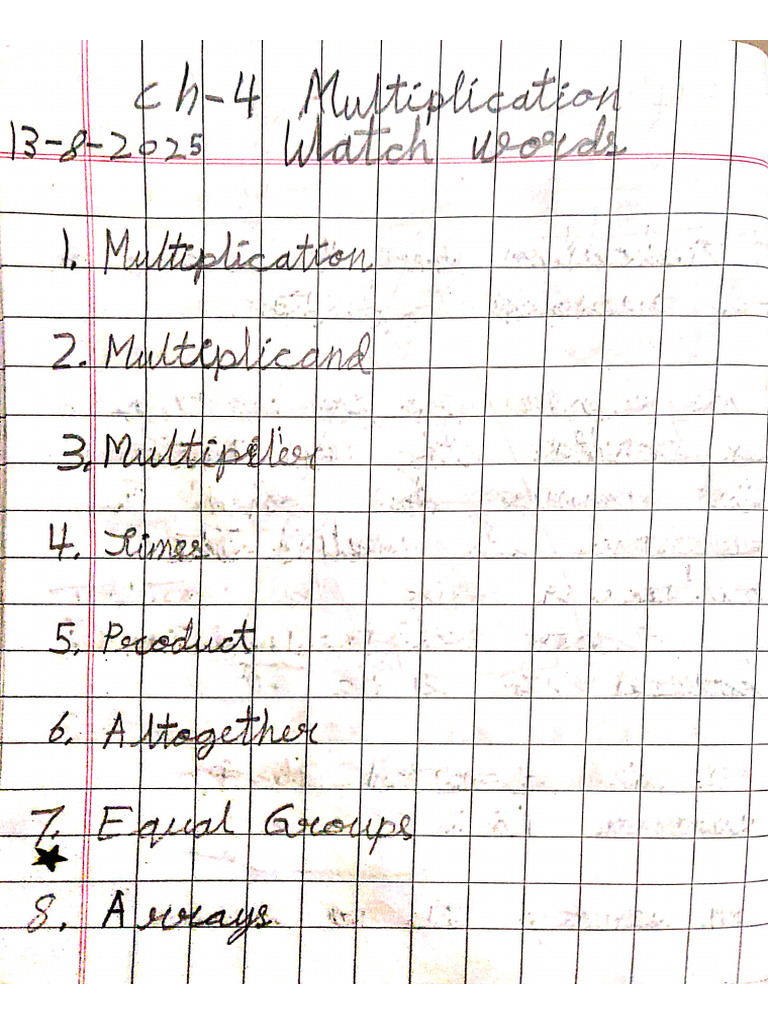 ch-4 Multiplication
13-8-2025 Watch words
1. Multiplication
2. Multiplicand
3. Multiplier
4. Times
5. Product
6. Altogether
7. Equal Groups
8. Arrays